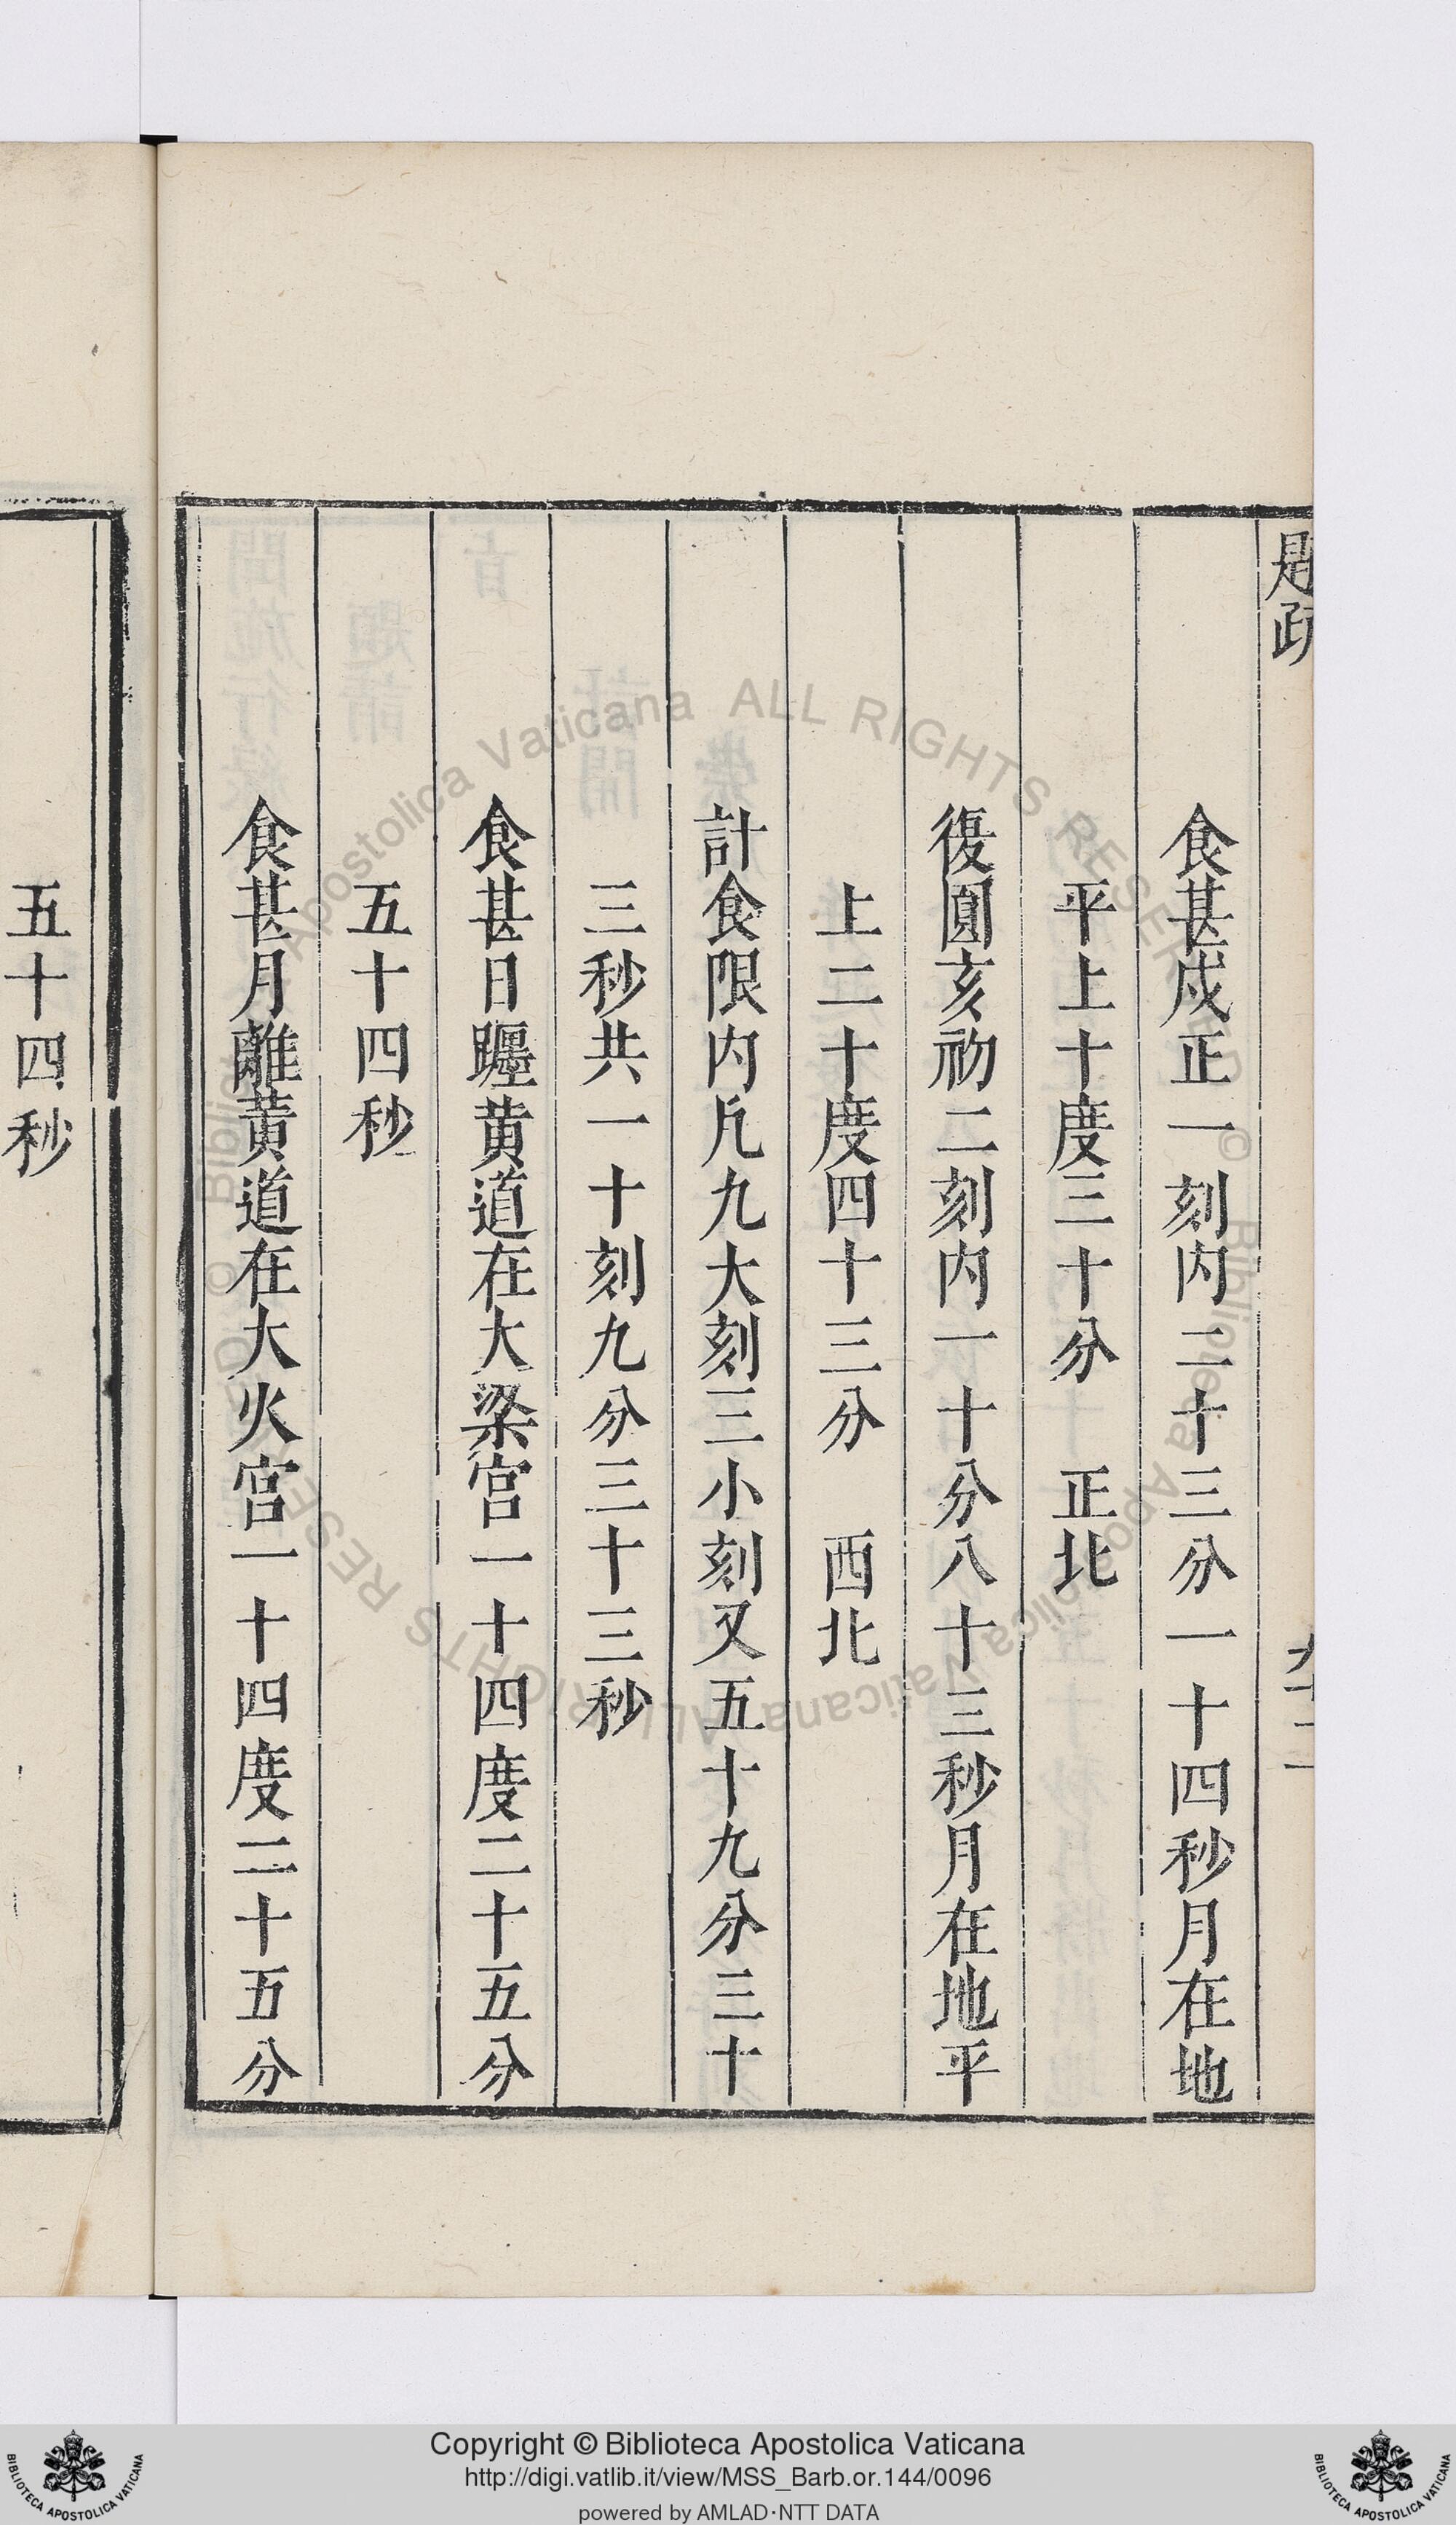 題疏
九十二
食甚戍正一刻內二十三分一十四秒月在地
平上十度三十分　正北
復圓亥初二刻內一十分八十三秒月在地平
上二十度四十三分　西北
計食限內凡九大刻三小刻又五十九分三十
三秒共一十刻九分三十三秒
食甚日躔黃道在大梁宮一十四度二十五分
五十四秒
食甚月離黃道在大火宮一十四度二十五分
五十四秒
© Biblioteca Apostolica Vaticana ALL RIGHTS RESERVED
Copyright © Biblioteca Apostolica Vaticana
http://digi.vatlib.it/view/MSS_Barb.or.144/0096
powered by AMLAD·NTT DATA
BIBLIOTECA APOSTOLICA VATICANA
BIBLIOTECA APOSTOLICA VATICANA